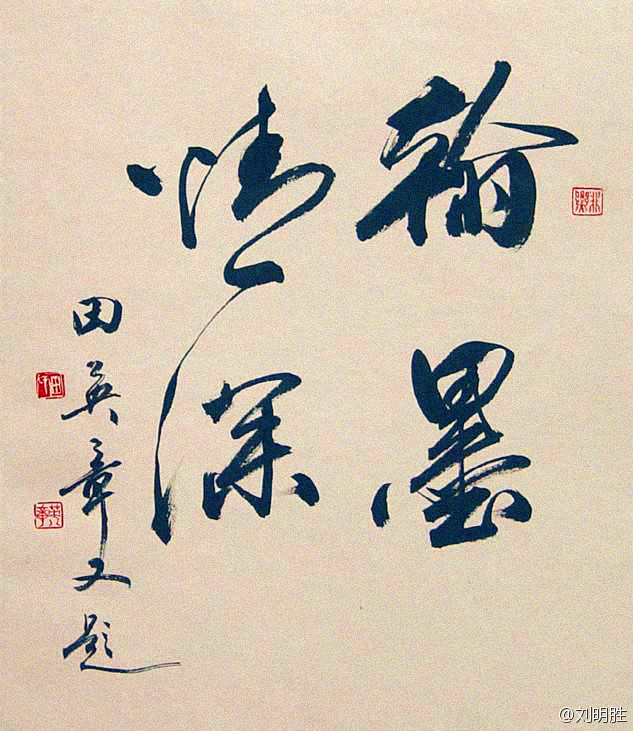 翰墨
情深
田英章又题
@刘明胜